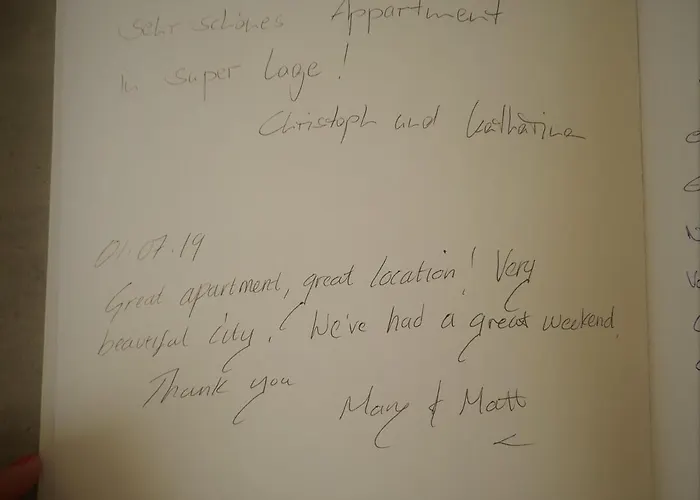 sehr schönes Appartment
in super Lage!
Christoph und Katharina
01.07.19
Great apartment, great location! Very
beautiful city. We've had a great weekend.
Thank you
Mary & Matt